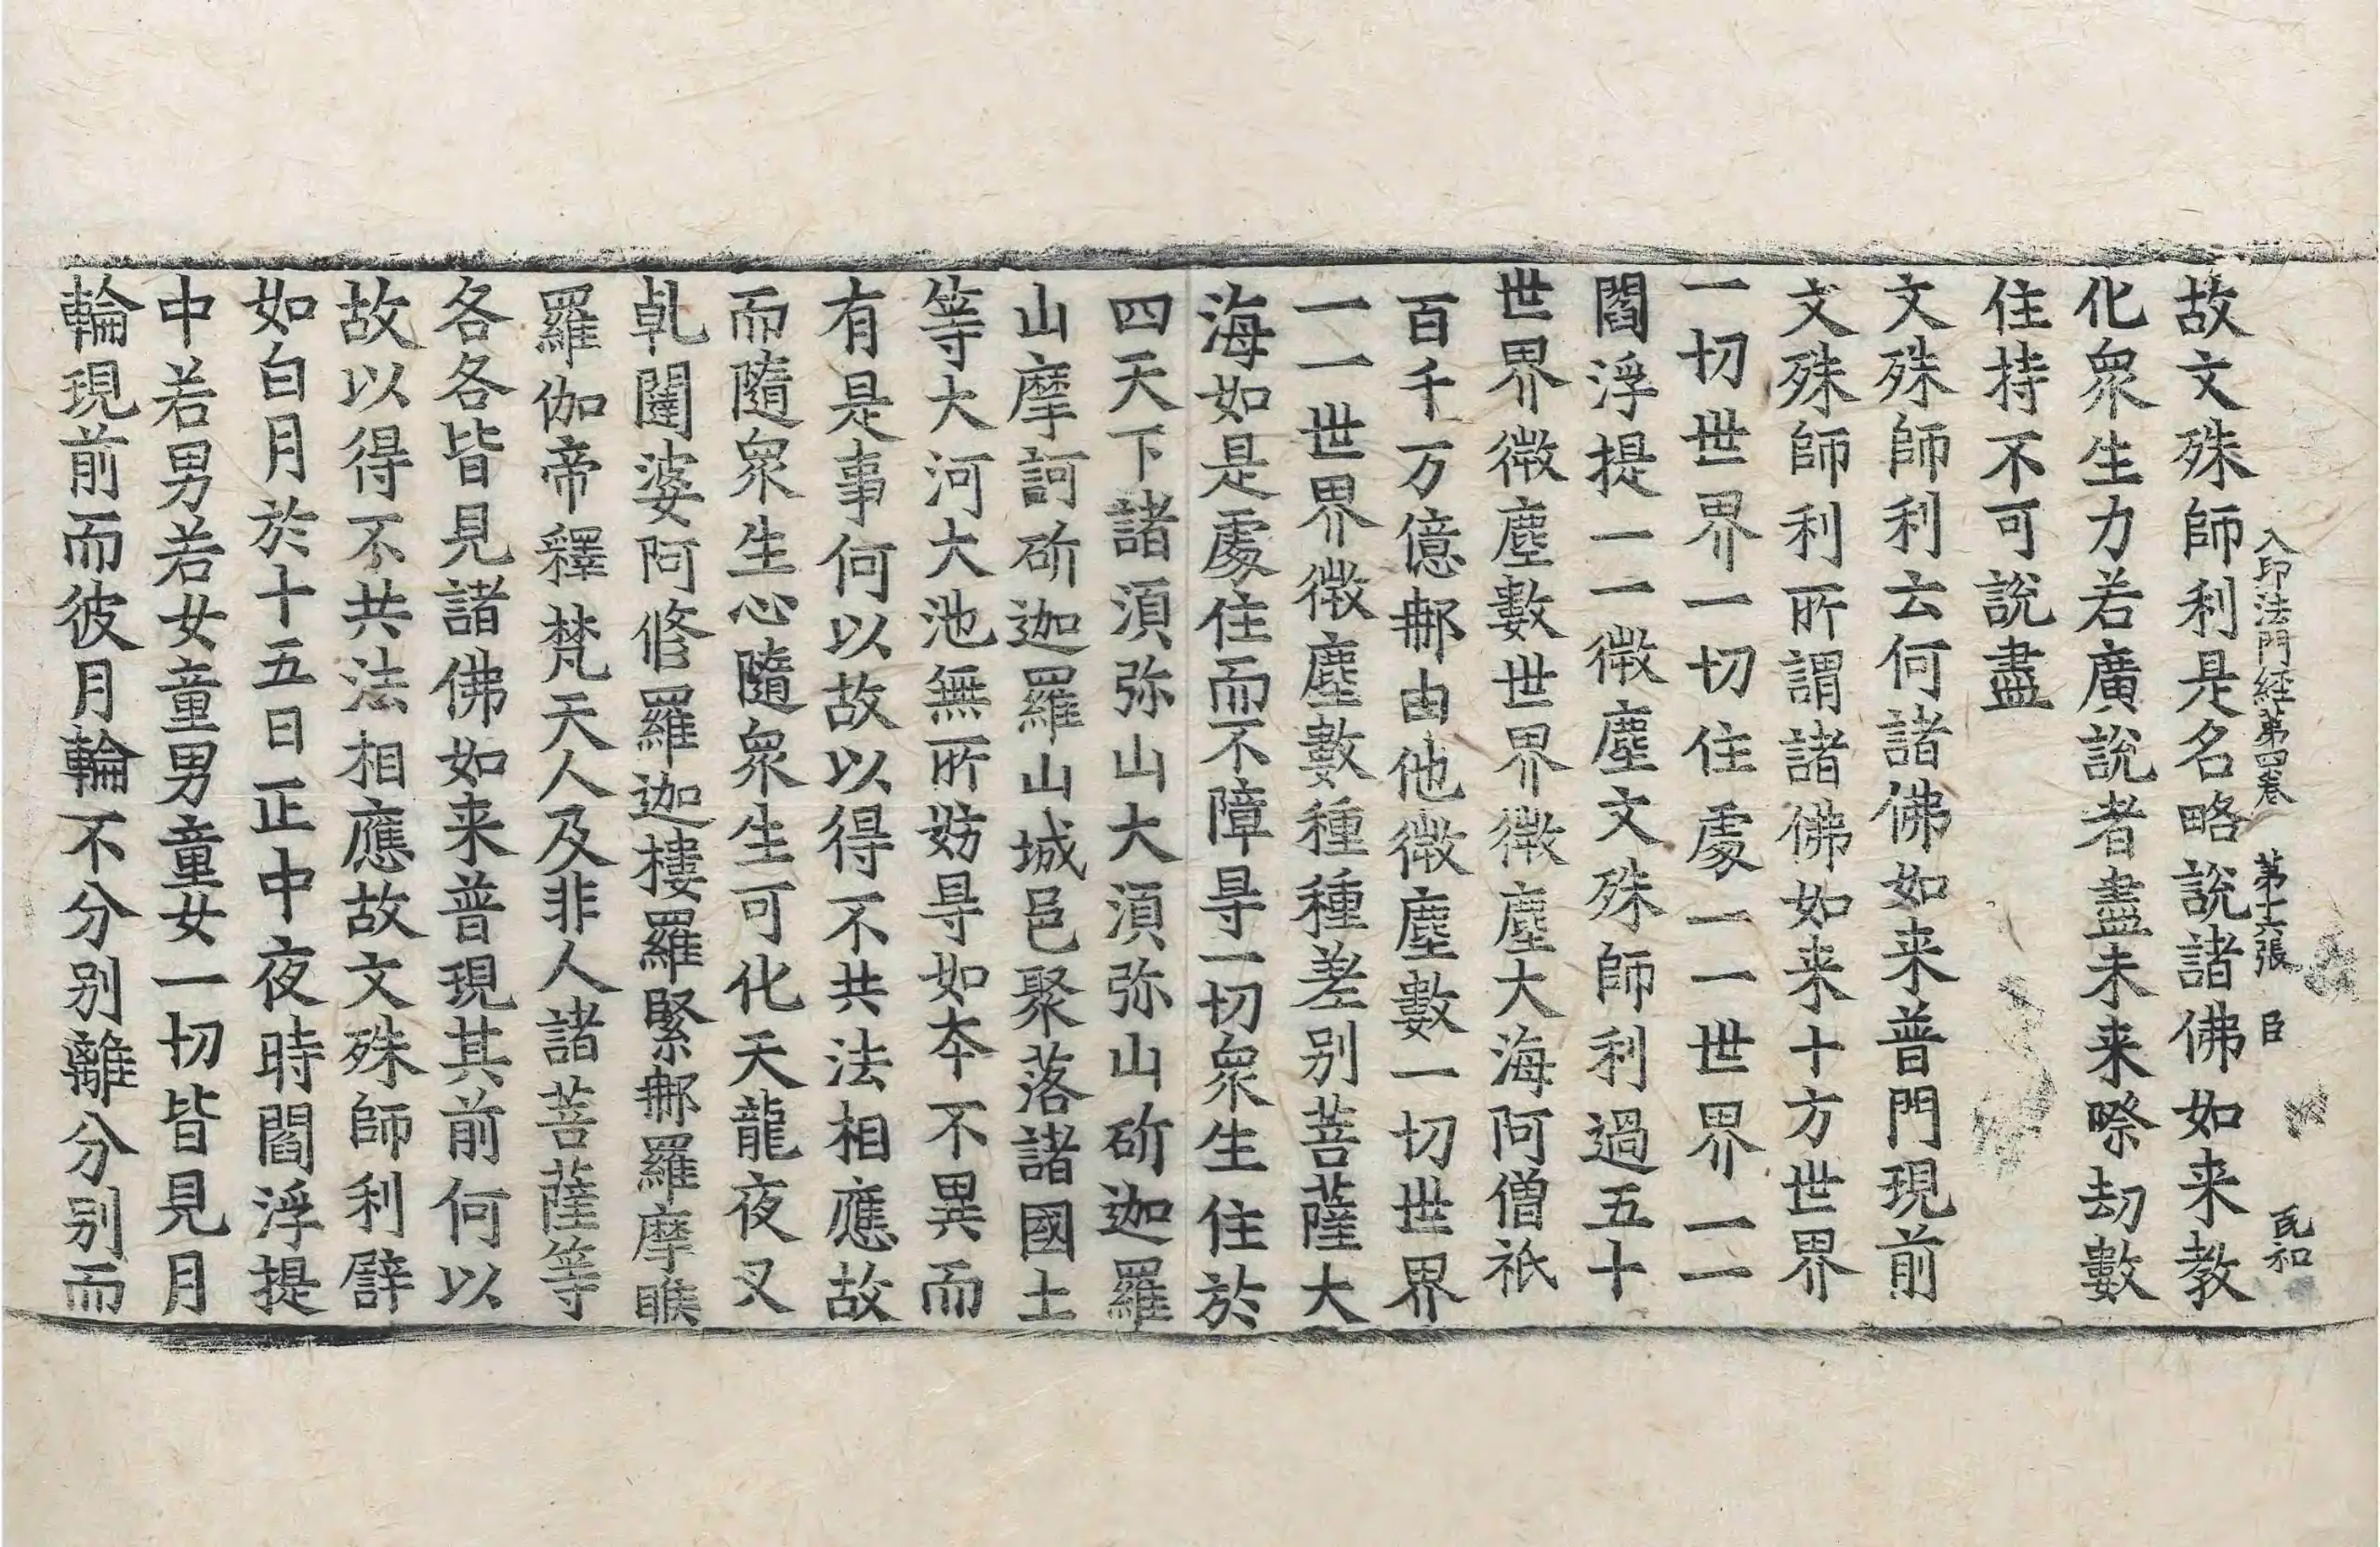 入印法門経第四卷 第十六張 臣 民和
故文殊師利是名略說諸佛如来教
化衆生力若廣說者盡未来際劫數
住持不可說盡
文殊師利云何諸佛如来普門現前
文殊師利所謂諸佛如来十方世界
一切世界一切住處一一世界一一
閻浮提一一微塵文殊師利過五十
世界微塵數世界微塵大海阿僧祇
百千万億那由他微塵數一切世界
一一世界微塵數種種差别菩薩大
海如是處住而不障㝵一切衆生住於
四天下諸湏弥山大湏弥山斫迦羅
山摩訶斫迦羅山城邑聚落諸國土
等大河大池無所妨㝵如本不異而
有是事何以故以得不共法相應故
而隨衆生心隨衆生可化天龍夜叉
乹闥婆阿修羅迦樓羅緊那羅摩睺
羅伽帝釋梵天人及非人諸菩薩等
各各皆見諸佛如来普現其前何以
故以得不共法相應故文殊師利譬
如白月於十五日正中夜時閻浮提
中若男若女童男童女一切皆見月
輪現前而彼月輪不分别離分别而